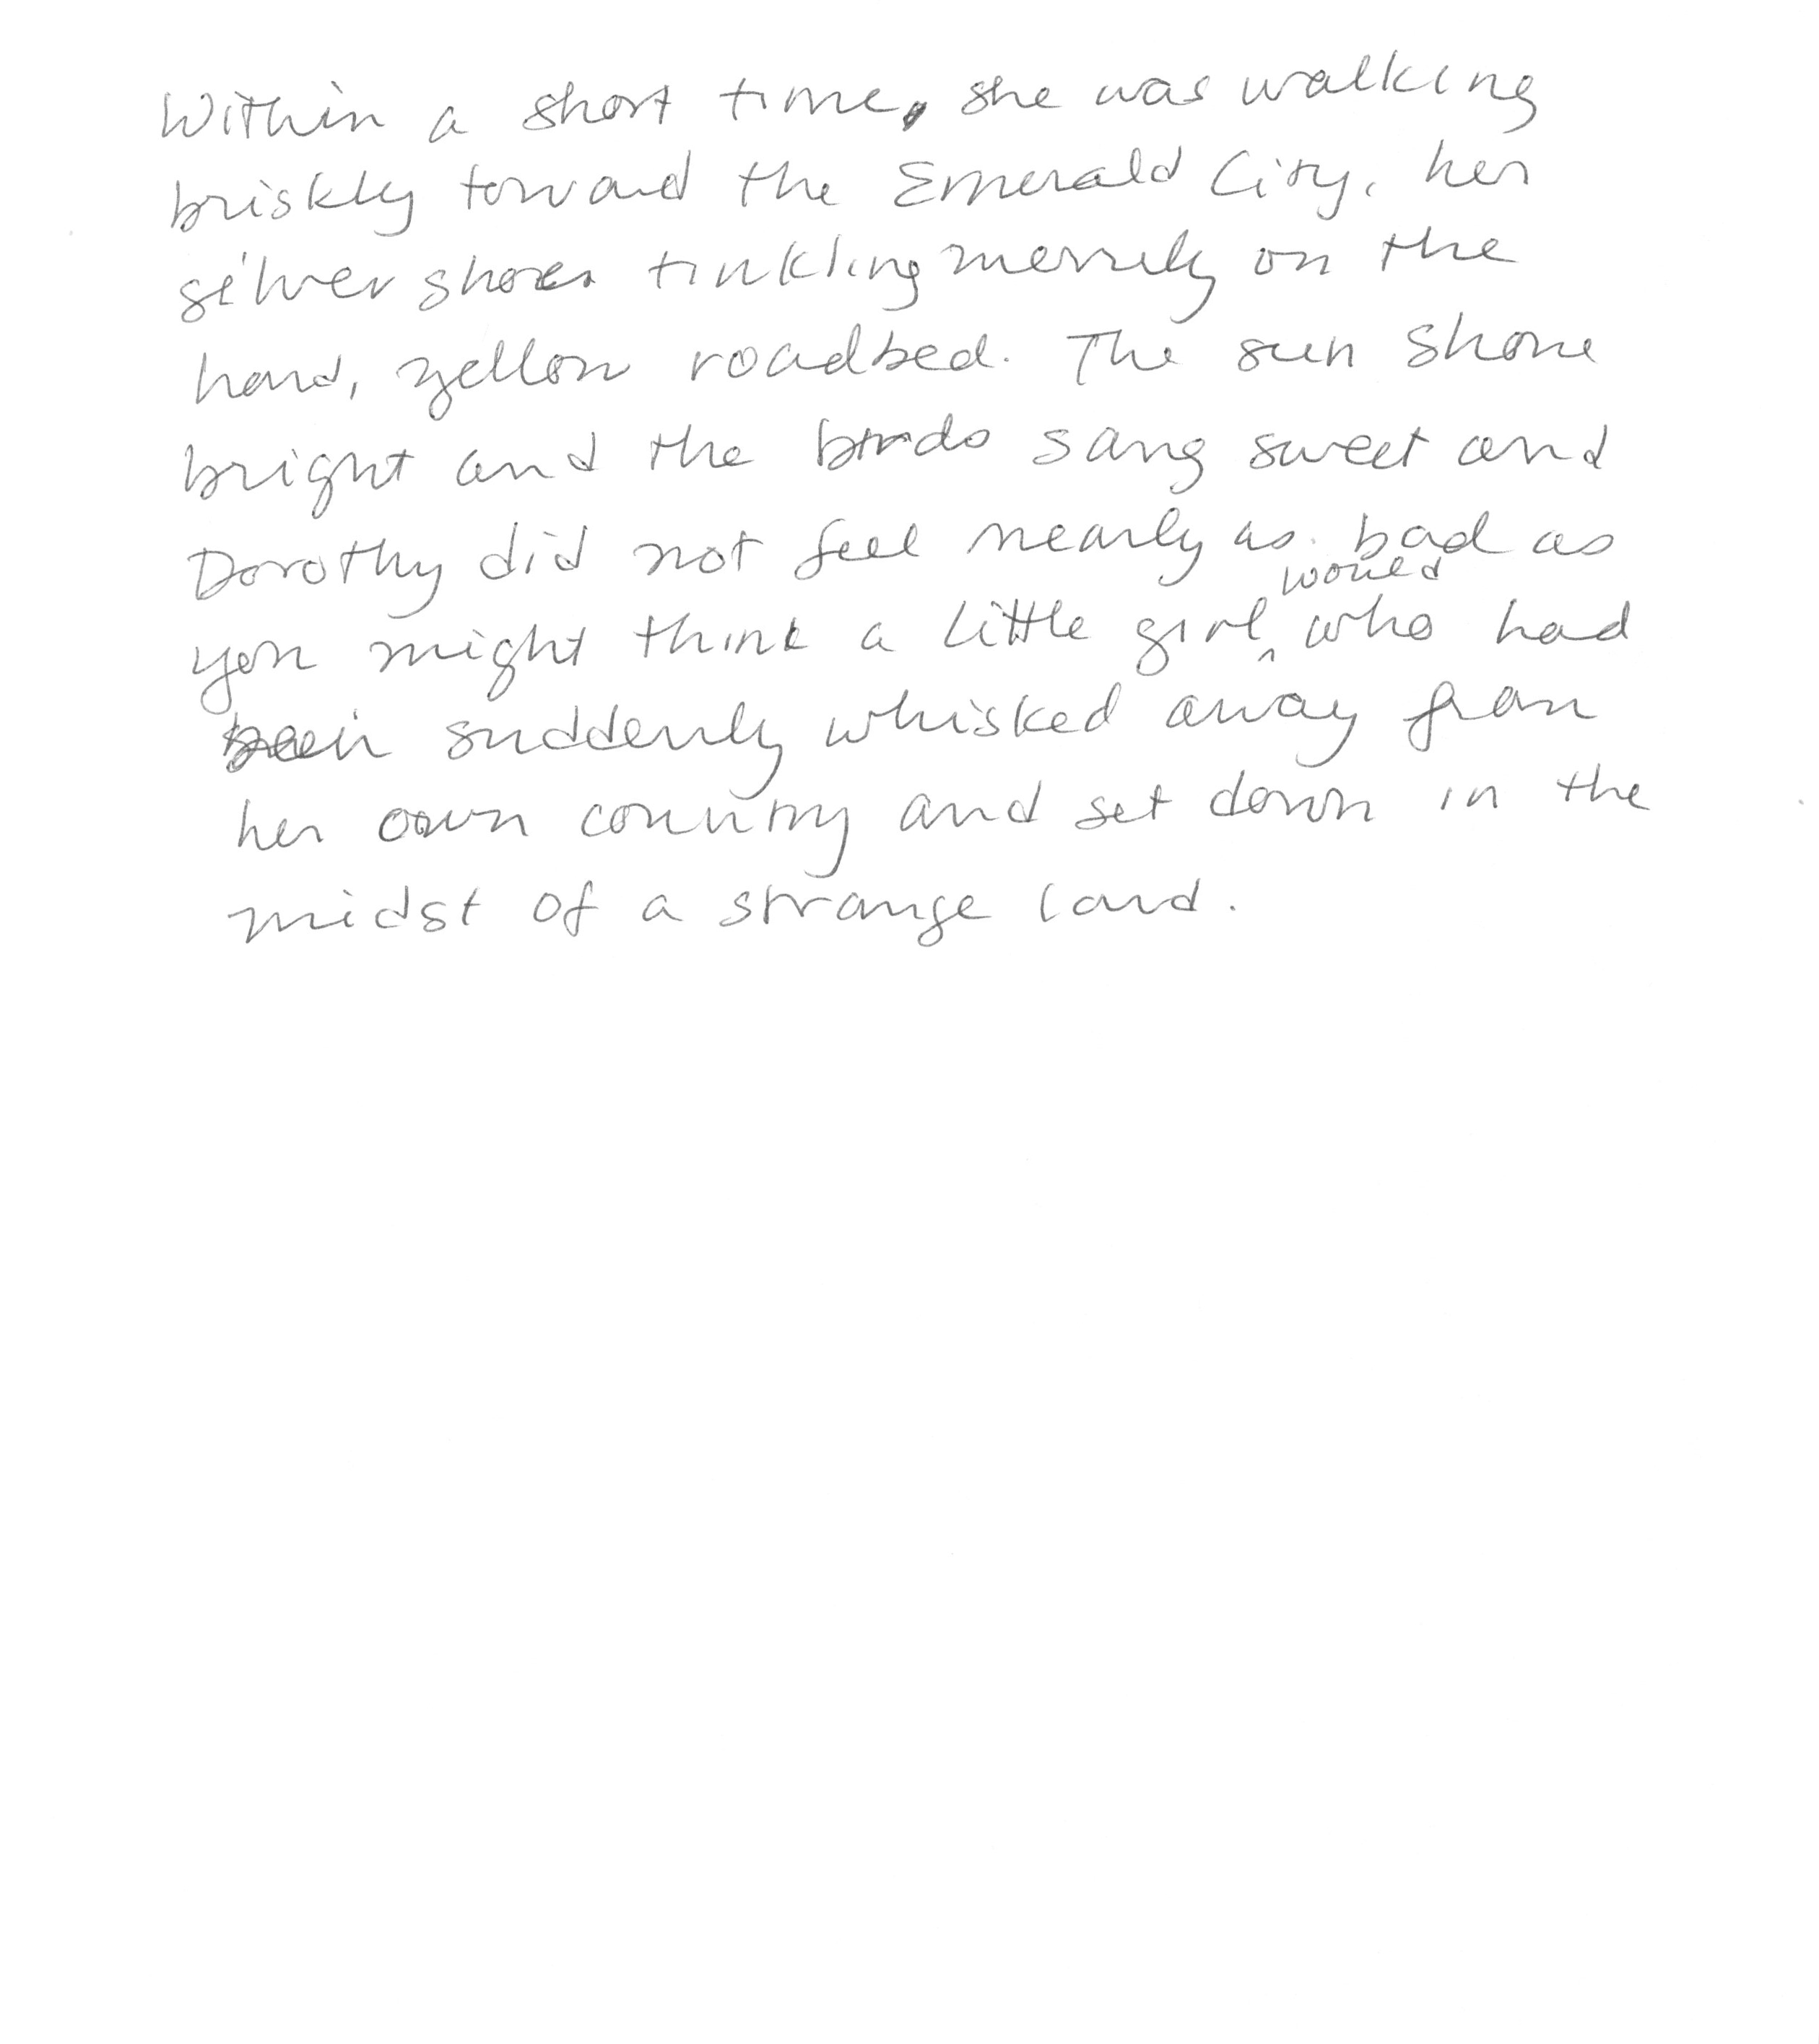 Within a short time, she was walking
briskly toward the Emerald City, her
silver shoes tinkling merrily on the
hard, yellow roadbed. The sun shone
bright and the birds sang sweet and
Dorothy did not feel nearly as bad as
you might think a little girl would who had
been suddenly whisked away from
her own country and set down in the
midst of a strange land.